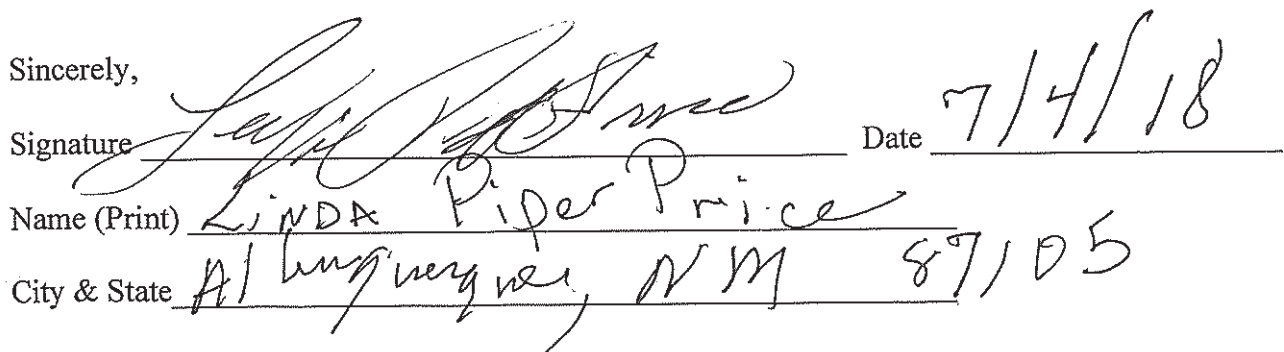 Sincerely,
Signature Date 7/4/18
Name (Print) LiNDA Piper Price
City & State Albuquerque, NM 87105